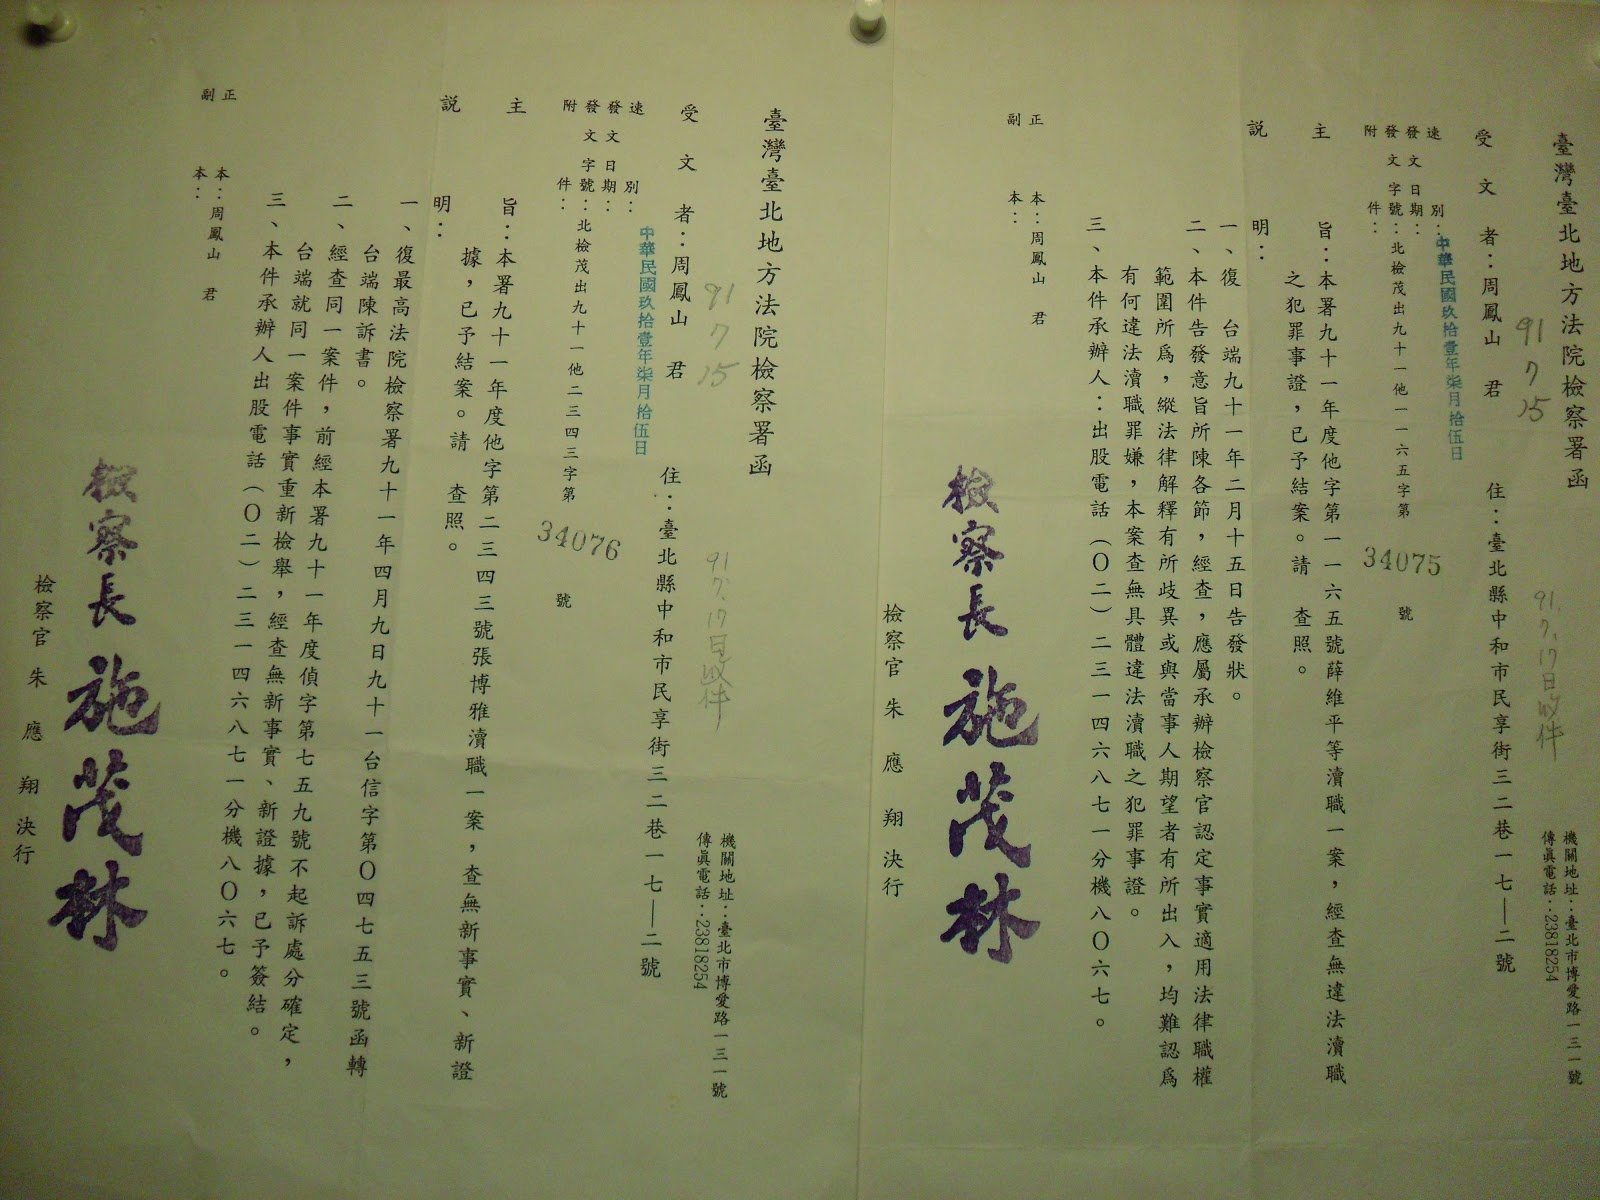 臺灣臺北地方法院檢察署函
機關地址：臺北市博愛路一三一號
傳眞電話：23818254
91 7 15
91.7.17日收件
受文者：周鳳山 君
住：臺北縣中和市民享街三二巷一七—二號
速別：
發文日期：中華民國玖拾壹年柒月拾伍日
發文字號：北檢茂出九十一他一一六五字第34075號
附件：
主旨：本署九十一年度他字第一一六五號薛維平等瀆職一案，經查無違法瀆職
之犯罪事證，已予結案。請 查照。
說明：
一、復 台端九十一年二月十五日告發狀。
二、本件告發意旨所陳各節，經查，應屬承辦檢察官認定事實適用法律職權
範圍所爲，縱法律解釋有所歧異或與當事人期望者有所出入，均難認爲
有何違法瀆職罪嫌，本案查無具體違法瀆職之犯罪事證。
三、本件承辦人：出股電話（〇二）二三一四六八七一分機八〇六七。
正本：周鳳山 君
副本：
檢察長 施茂林
檢察官 朱應翔 決行
臺灣臺北地方法院檢察署函
機關地址：臺北市博愛路一三一號
傳眞電話：23818254
91 7 15
91.7.17日收件
受文者：周鳳山 君
住：臺北縣中和市民享街三二巷一七—二號
速別：
發文日期：中華民國玖拾壹年柒月拾伍日
發文字號：北檢茂出九十一他二三四三字第34076號
附件：
主旨：本署九十一年度他字第二三四三號張博雅瀆職一案，查無新事實、新證
據，已予結案。請 查照。
說明：
一、復最高法院檢察署九十一年四月九日九十一台信字第〇四七五三號函轉
台端陳訴書。
二、經查同一案件，前經本署九十一年度偵字第七五九號不起訴處分確定，
台端就同一案件事實重新檢舉，經查無新事實、新證據，已予簽結。
三、本件承辦人出股電話（〇二）二三一四六八七一分機八〇六七。
正本：周鳳山 君
副本：
檢察長 施茂林
檢察官 朱應翔 決行